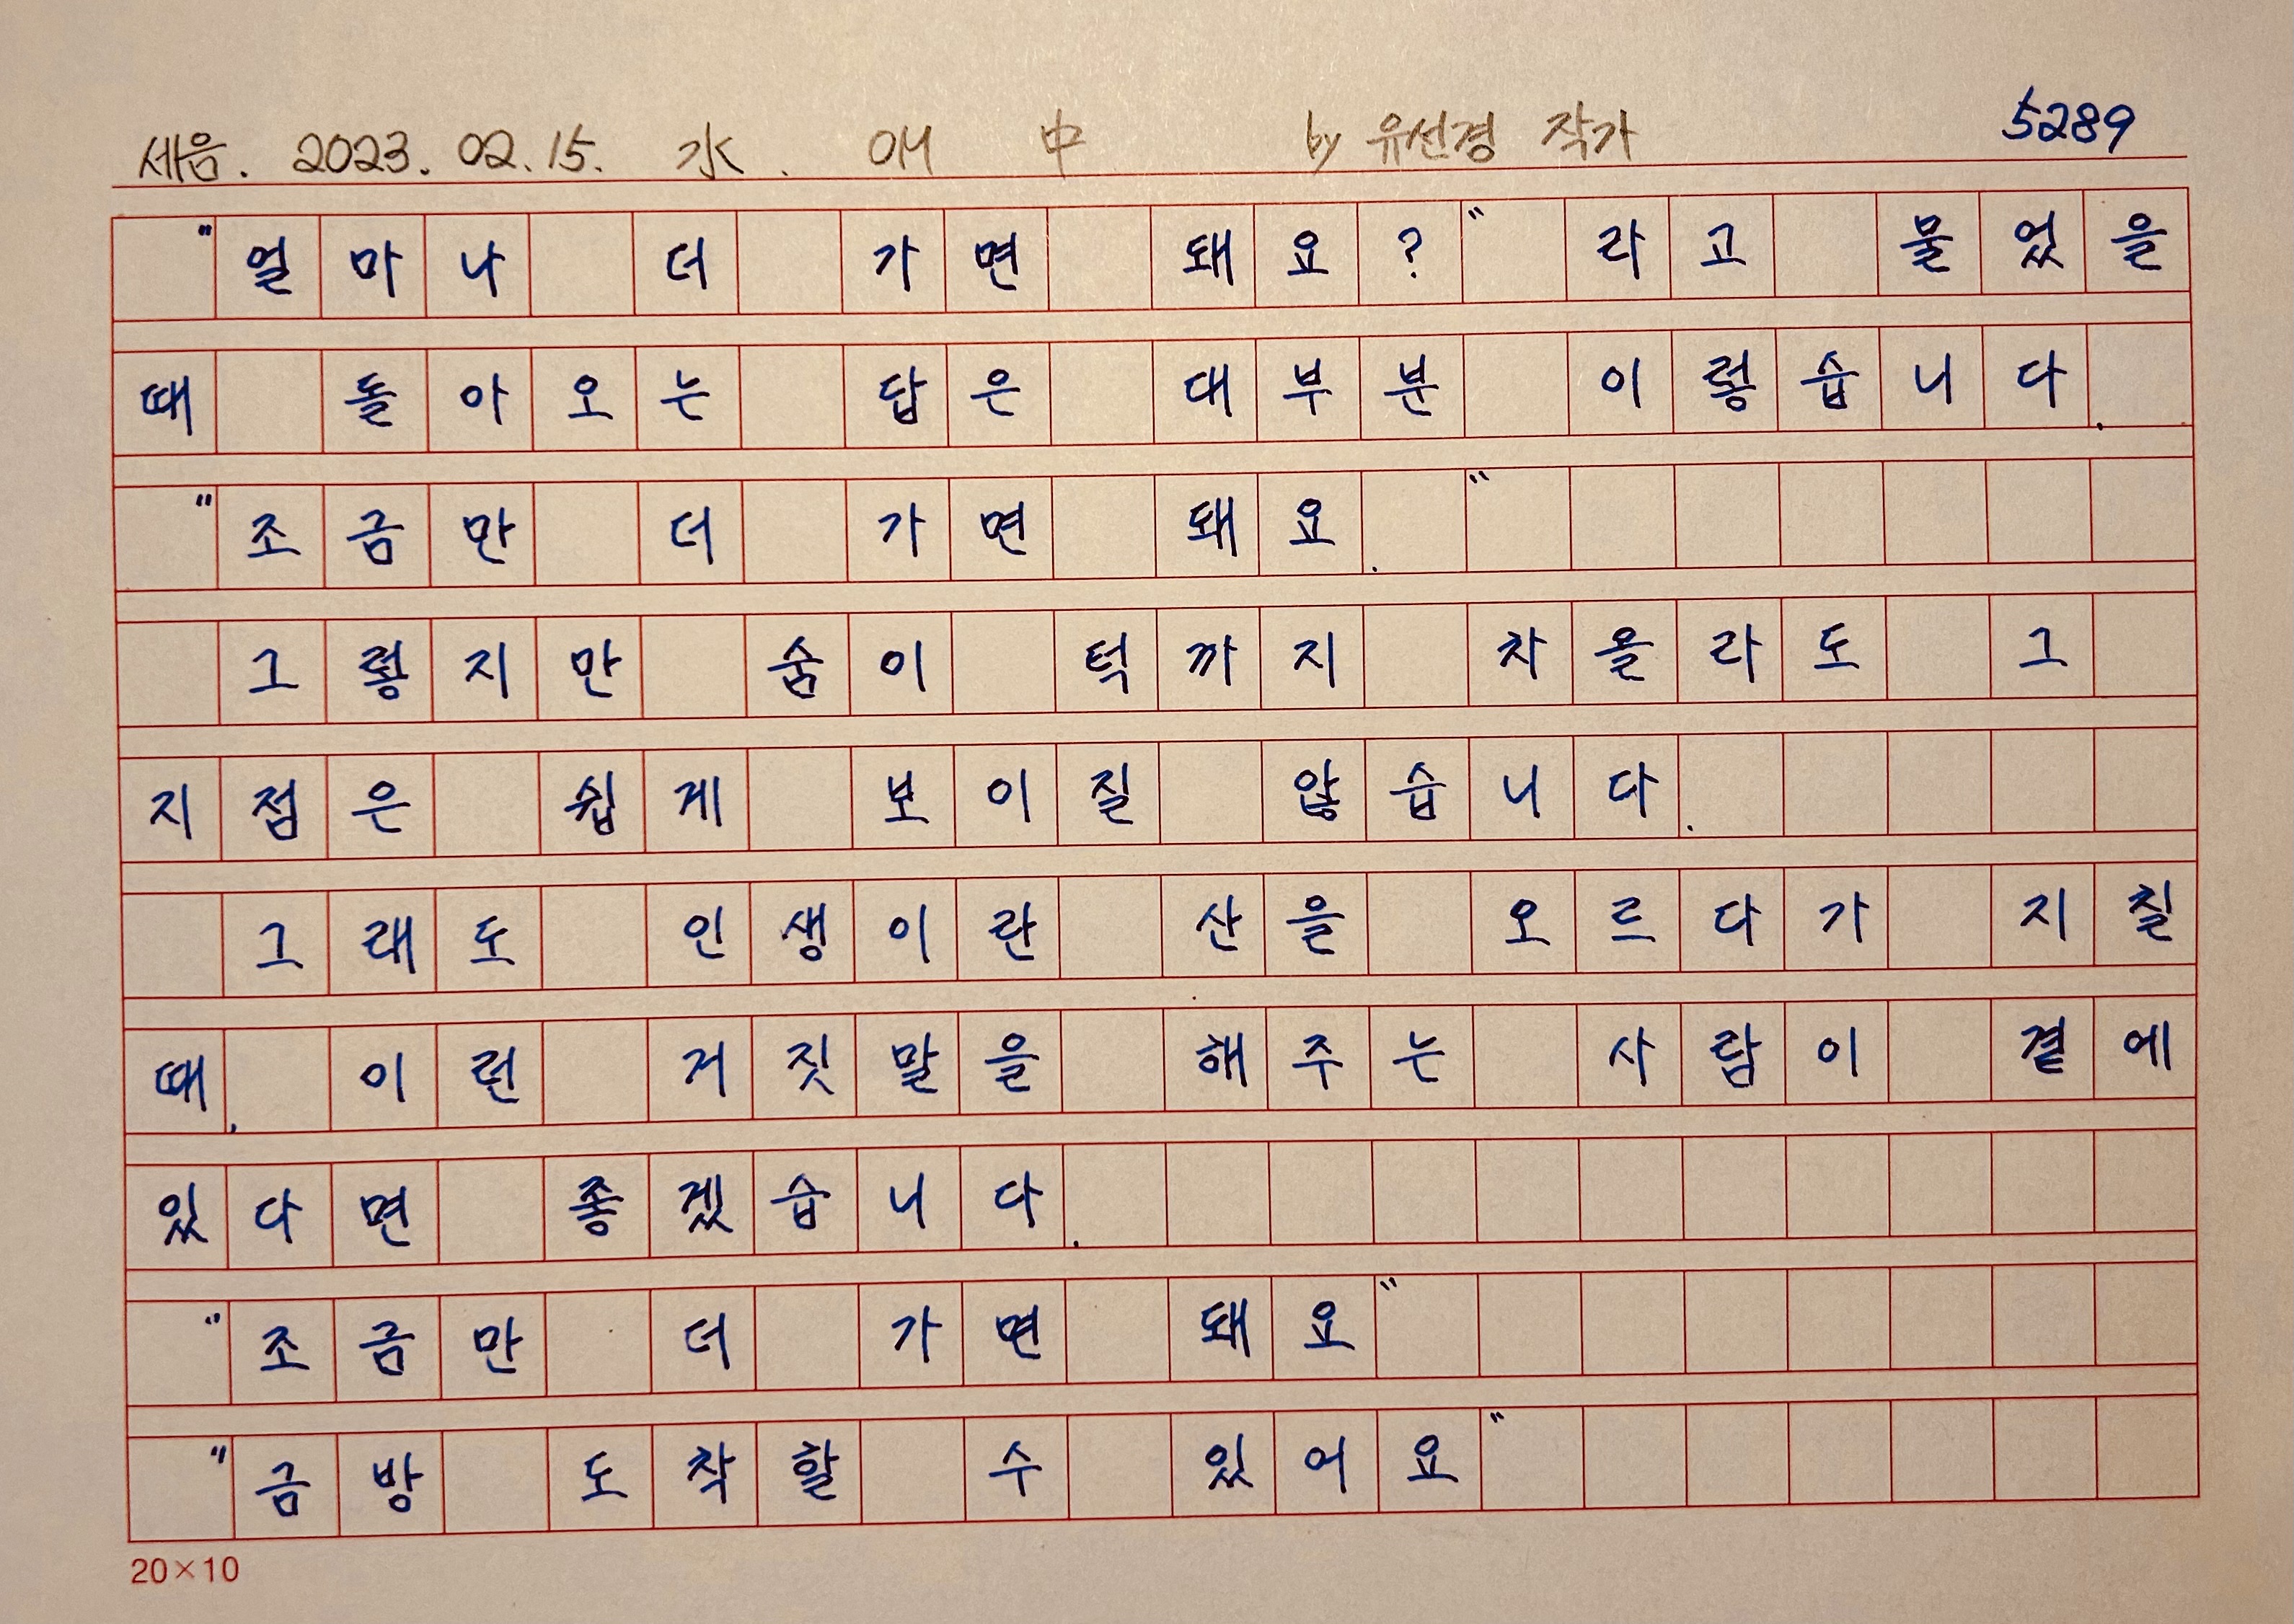 세음. 2023. 02. 15. 水. 애 中 by 유선경 작가 5289
"얼마나 더 가면 돼요?" 라고 물었을
때 돌아오는 답은 대부분 이렇습니다.
"조금만 더 가면 돼요."
그렇지만 숨이 턱까지 차올라도 그
지점은 쉽게 보이질 않습니다.
그래도 인생이란 산을 오르다가 지칠
때. 이런 거짓말을 해주는 사람이 곁에
있다면 좋겠습니다.
"조금만 더 가면 돼요"
"금방 도착할 수 있어요"
20×10